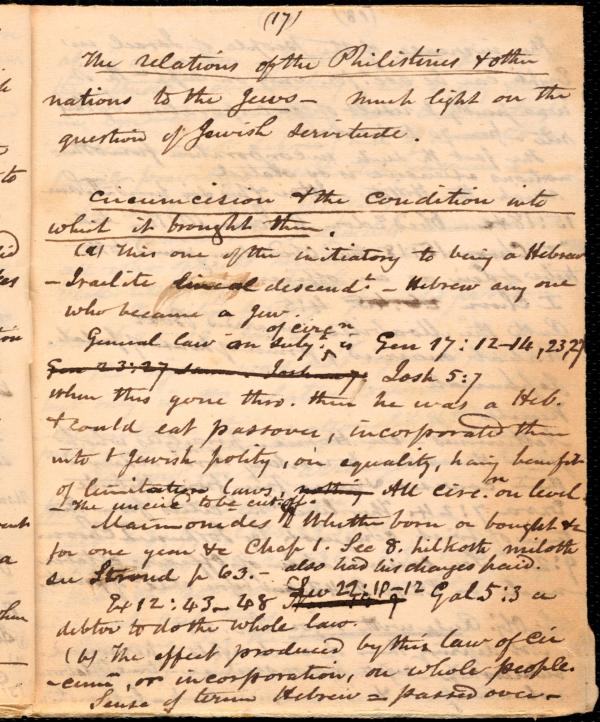 (17)
The relations of the Philistines & other
nations to the Jews — Much light on the
question of Jewish servitude.
Circumcision & the condition into
which it brought them.
(a) This one of the initiatory to being a Hebrew
– Israelite lineal descendt – Hebrew any one
who became a Jew.
of circn
General law on subjt is Gen 17:12–14, 23,27
Gen 23:27 same. Josh 5:7
When this gone thro. then he was a Heb.
& could eat passover, incorporated then
into t Jewish polity, on equality, havg benefit
of limitation laws, nothing All circn on level.
– The uncirc. to be cut off.
Maimonides Whether born or bought &c
for one year &c Chap 1. Sec 8. hilkoth miloth
see Stroud p 63. – also had his charges paid.
Ex 12:43–48 Lev 22:10–12 Gal 5:3 a
debtor to do the whole law.
(b) The effect produced by this law of cir
–cumn, or incorporation, on whole people.
Sense of term Hebrew = passed over –